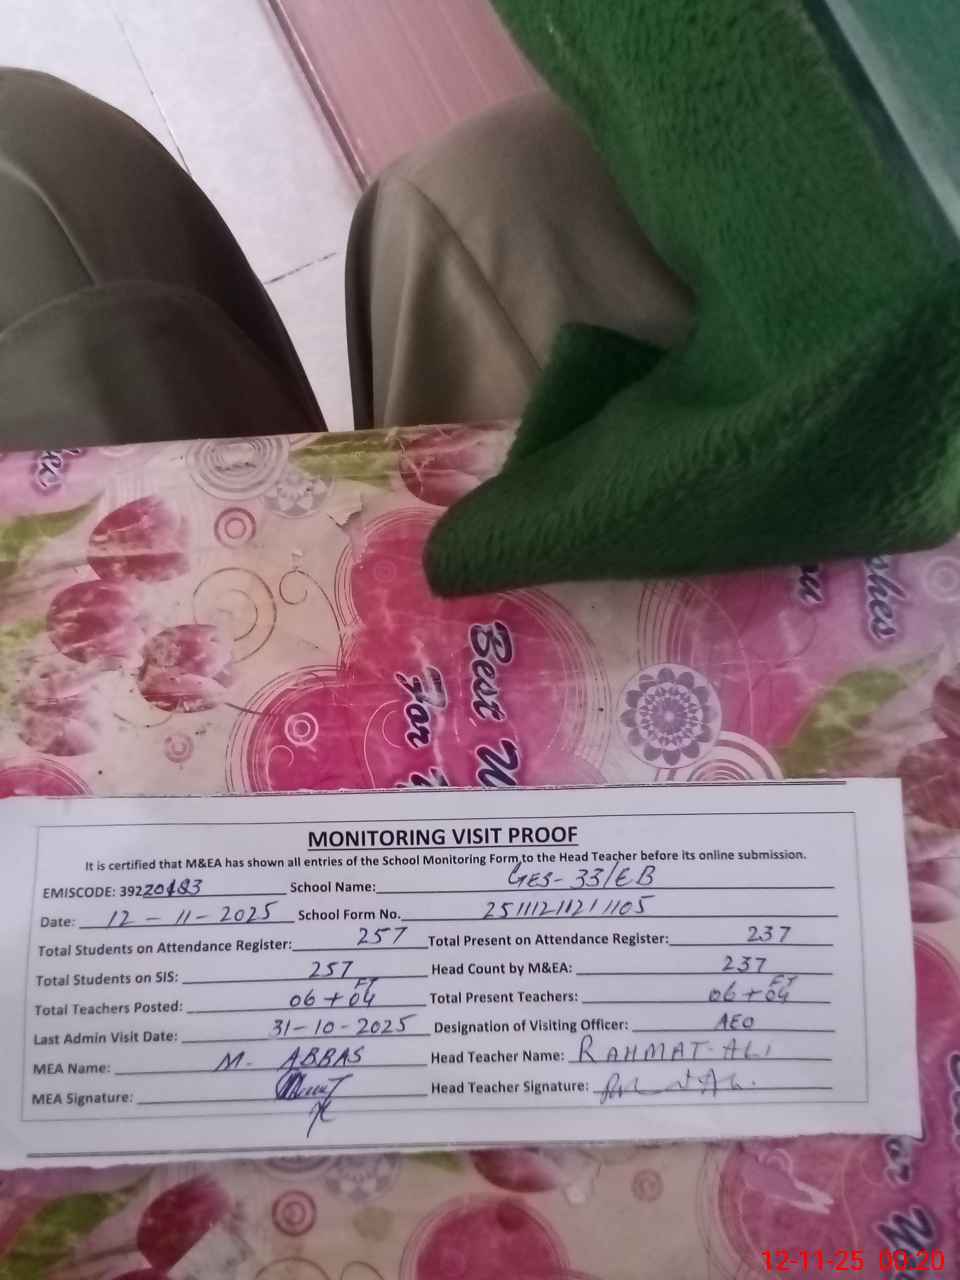 shes
Best W
For
MONITORING VISIT PROOF
It is certified that M&EA has shown all entries of the School Monitoring Form to the Head Teacher before its online submission.
EMISCODE: 392 School Name: GES- 33/EB
Date: 12-11-2025 School Form No.
Total Students on Attendance Register: 257 Total Present on Attendance Register: 237
Total Students on SIS: 257 Head Count by M&EA: 237
Total Teachers Posted: 06 + 04 FT Total Present Teachers: 06 + 04 FT
Last Admin Visit Date: 31-10-2025 Designation of Visiting Officer: AEO
MEA Name: M- ABBAS Head Teacher Name: RAHMAT-ALI
MEA Signature: Head Teacher Signature:
12-11-25 00:20